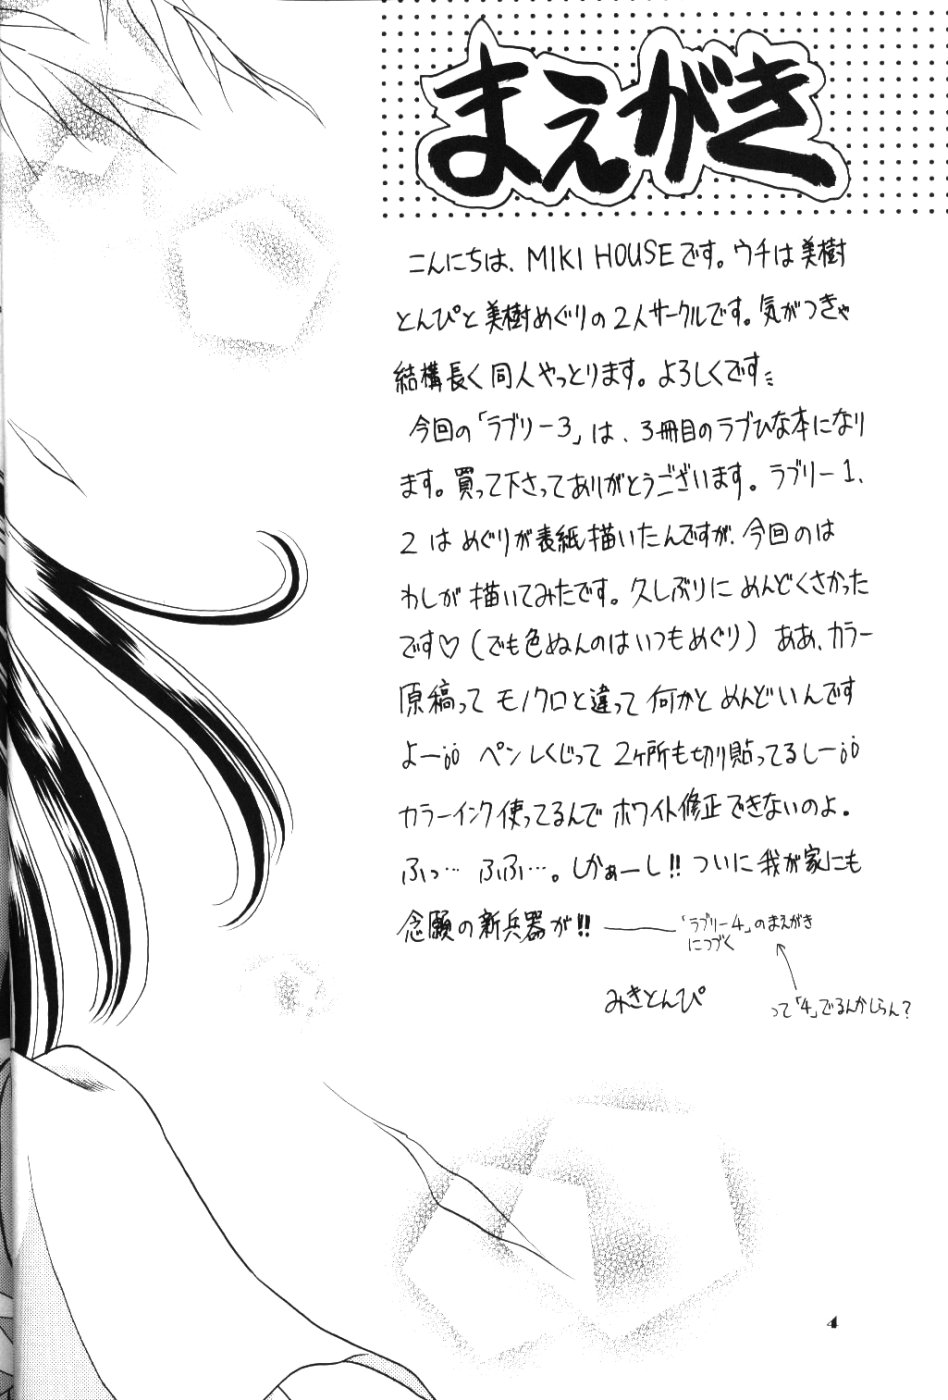 まえがき
こんにちは、MIKI HOUSEです。ウチは美樹
とんぴと美樹めぐりの2人サークルです。気がつきゃ
結構長く同人やっとります。よろしくです
今回の「ラブリー3」は、3冊目のラブひな本になり
ます。買って下さってありがとうございます。ラブリー1、
2はめぐりが表紙描いたんですが、今回のは
わしが描いてみたです。久しぶりにめんどくさかった
です♡(でも色ぬんのはいつもめぐり)ああ、カラー
原稿ってモノクロと違って何かとめんどいんです
よー ペンしくじって2ヶ所も切り貼ってるしー
カラーインク使ってるんでホワイト修正できないのよ。
ふっ…ふふ…。しかぁーし!!ついに我が家にも
念願の新兵器が!! ――「ラブリー4」のまえがき
につづく
みきとんぴ
って「4」でるんかしらん?
4